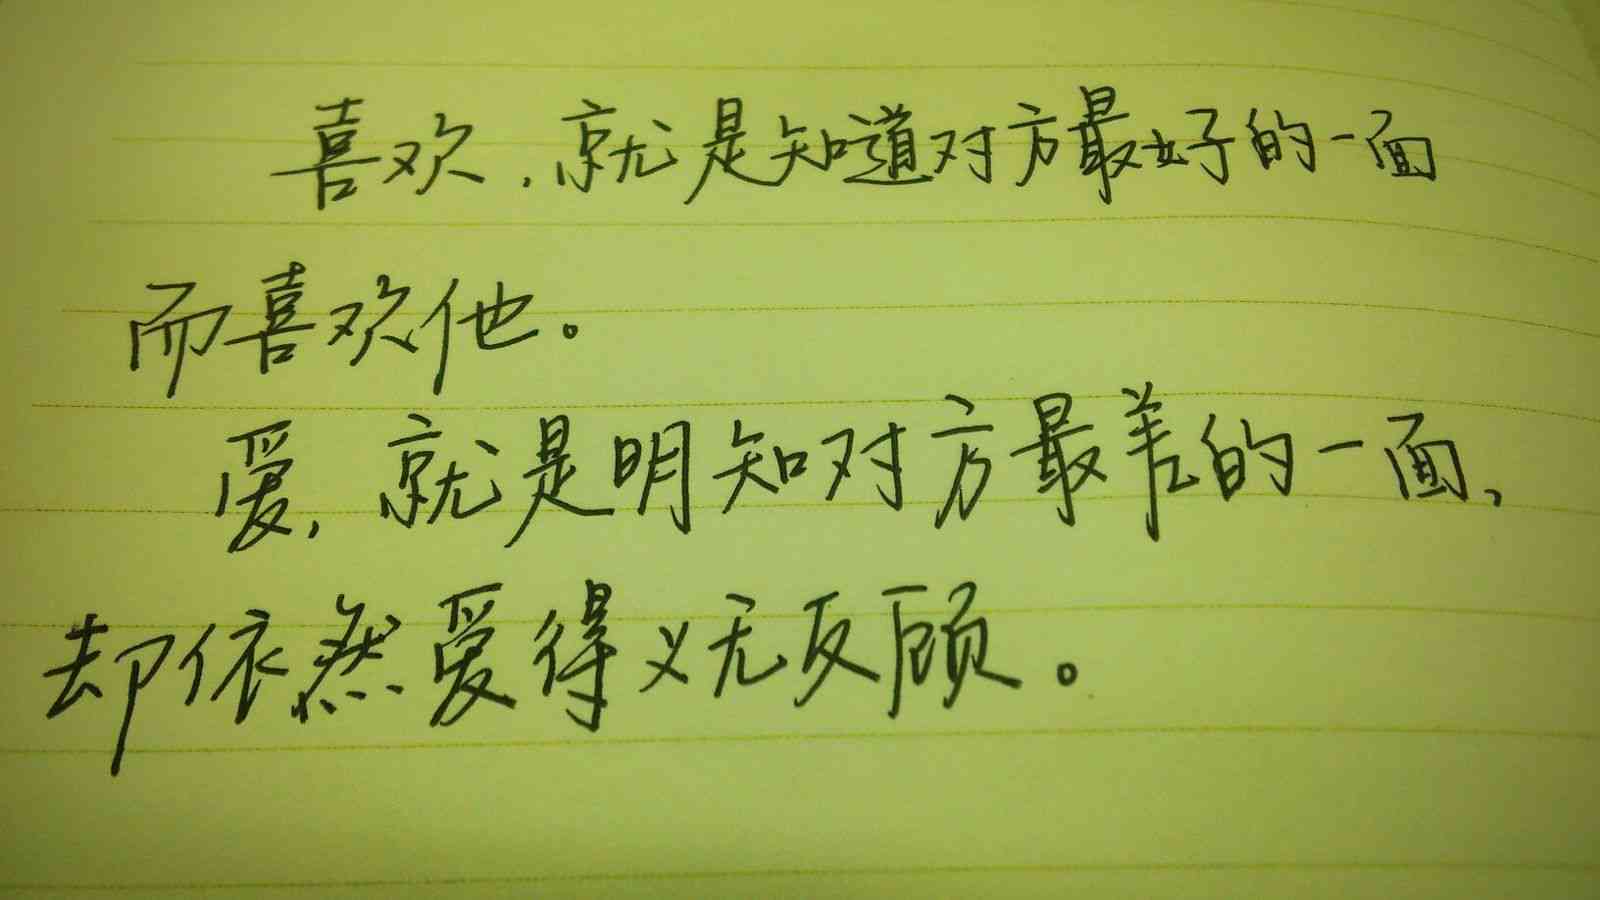 喜欢，就是知道对方最好的一面
而喜欢他。
爱，就是明知对方最差的一面，
却依然爱得义无反顾。